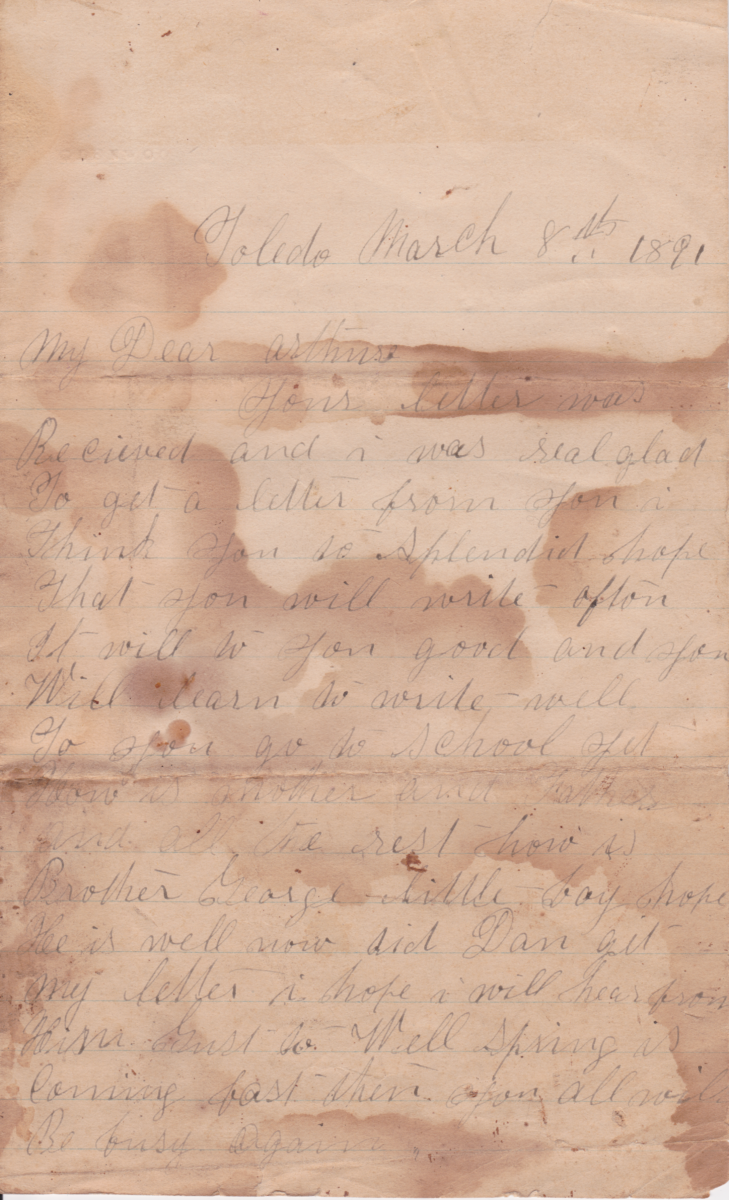 Toledo March 8th 1891
My Dear arthur
Your letter was
Recieved and i was real glad
To get a letter from you i
Think you do splendid hope
That you will write ofton
It will to you good and you
Will learn to write well
Do you go to school yet
How is mother and Father
and all the rest how is
Brother George little boy hope
He is well now did Dan get
My letter i hope i will hear from
Him to Well Spring is
Coming fast then you all will
Be busy again